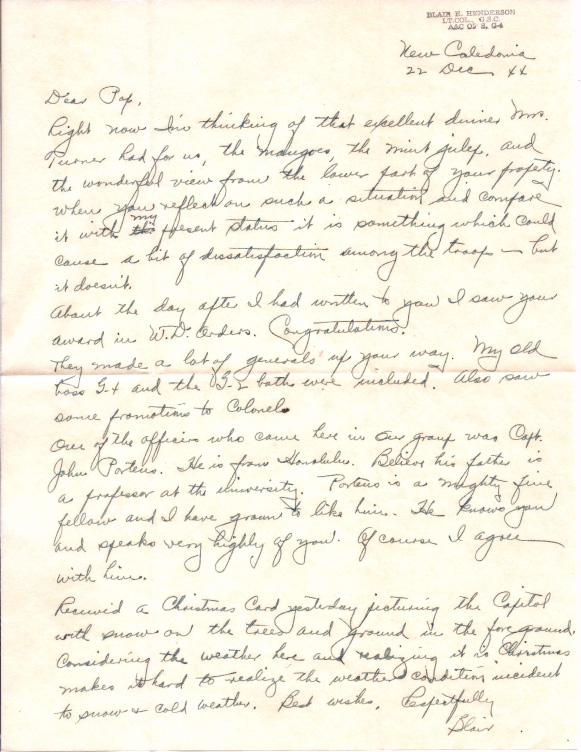 BLAIR E. HENDERSON
LT.COL., G.S.C.
AAC OF S, G-4
New Caledonia
22 Dec 44
Dear Pop,
Right now I'm thinking of that excellent dinner Mrs.
Turner had for us, the mangoes, the mint julep, and
the wonderful view from the lower part of your property.
When you reflect on such a situation and compare
it with my present status it is something which could
cause a bit of dissatisfaction among the troops — but
it doesn't.
About the day after I had written to you I saw your
award in W.D. Orders. Congratulations.
They made a lot of generals up your way. My old
boss G-4 and the G-2 both were included. Also saw
some promotions to Colonels
One of the officers who came here in our group was Capt.
John Porteus. He is from Honolulu. Believe his father is
a professor at the university. Porteus is a mighty fine
fellow and I have grown to like him. He knows you
and speaks very highly of you. Of course I agree
with him.
Received a Christmas Card yesterday picturing the Capitol
with snow on the trees and ground in the fore ground.
Considering the weather here and realizing it is Christmas
makes it hard to realize the weather condition incident
to snow & cold weather. Best wishes, Respectfully
Blair